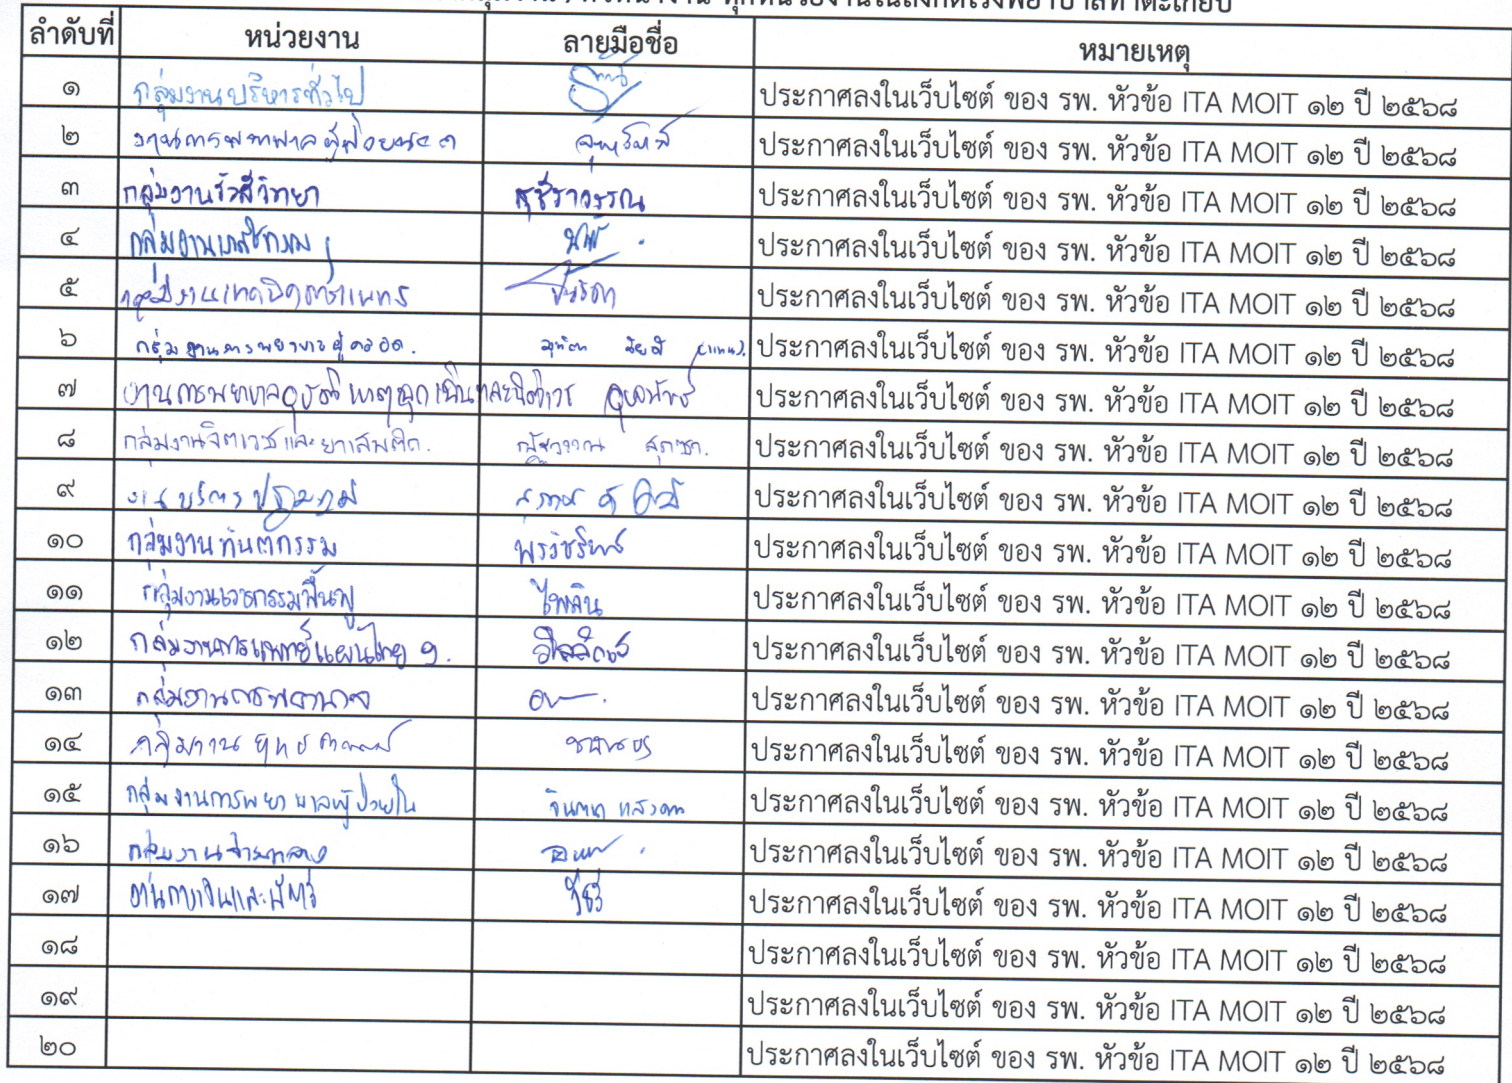 ทุกหน่วยงานในสังกัดโรงพยาบาลท่าตะเกียบ
ลำดับที่ หน่วยงาน ลายมือชื่อ หมายเหตุ
๑ กลุ่มงานบริหารทั่วไป ประกาศลงในเว็บไซต์ ของ รพ. หัวข้อ ITA MOIT ๑๒ ปี ๒๕๖๘
๒ งานการพยาบาลผู้ป่วยนอก ประกาศลงในเว็บไซต์ ของ รพ. หัวข้อ ITA MOIT ๑๒ ปี ๒๕๖๘
๓ กลุ่มงานรังสีวิทยา สุชีราวรรณ ประกาศลงในเว็บไซต์ ของ รพ. หัวข้อ ITA MOIT ๑๒ ปี ๒๕๖๘
๔ กลุ่มงานเภสัชกรรม ประกาศลงในเว็บไซต์ ของ รพ. หัวข้อ ITA MOIT ๑๒ ปี ๒๕๖๘
๕ กลุ่มงานเทคนิคการแพทย์ ประกาศลงในเว็บไซต์ ของ รพ. หัวข้อ ITA MOIT ๑๒ ปี ๒๕๖๘
๖ กลุ่มงานการพยาบาลผู้คลอด. ประกาศลงในเว็บไซต์ ของ รพ. หัวข้อ ITA MOIT ๑๒ ปี ๒๕๖๘
๗ งานการพยาบาลอุบัติเหตุฉุกเฉินและนิติเวช ประกาศลงในเว็บไซต์ ของ รพ. หัวข้อ ITA MOIT ๑๒ ปี ๒๕๖๘
๘ กลุ่มงานจิตเวชและยาเสพติด. ประกาศลงในเว็บไซต์ ของ รพ. หัวข้อ ITA MOIT ๑๒ ปี ๒๕๖๘
๙ งานบริการปฐมภูมิ ประกาศลงในเว็บไซต์ ของ รพ. หัวข้อ ITA MOIT ๑๒ ปี ๒๕๖๘
๑๐ กลุ่มงานทันตกรรม ประกาศลงในเว็บไซต์ ของ รพ. หัวข้อ ITA MOIT ๑๒ ปี ๒๕๖๘
๑๑ กลุ่มงานเวชกรรมฟื้นฟู ไพลิน ประกาศลงในเว็บไซต์ ของ รพ. หัวข้อ ITA MOIT ๑๒ ปี ๒๕๖๘
๑๒ กลุ่มงานการแพทย์แผนไทย ฯ. วิไลลักษณ์ ประกาศลงในเว็บไซต์ ของ รพ. หัวข้อ ITA MOIT ๑๒ ปี ๒๕๖๘
๑๓ กลุ่มงานการพยาบาล ประกาศลงในเว็บไซต์ ของ รพ. หัวข้อ ITA MOIT ๑๒ ปี ๒๕๖๘
๑๔ กลุ่มงานยุทธศาสตร์ ประกาศลงในเว็บไซต์ ของ รพ. หัวข้อ ITA MOIT ๑๒ ปี ๒๕๖๘
๑๕ กลุ่มงานการพยาบาลผู้ป่วยใน ประกาศลงในเว็บไซต์ ของ รพ. หัวข้อ ITA MOIT ๑๒ ปี ๒๕๖๘
๑๖ กลุ่มงานจ่ายกลาง ประกาศลงในเว็บไซต์ ของ รพ. หัวข้อ ITA MOIT ๑๒ ปี ๒๕๖๘
๑๗ งานการเงินและบัญชี ประกาศลงในเว็บไซต์ ของ รพ. หัวข้อ ITA MOIT ๑๒ ปี ๒๕๖๘
๑๘ ประกาศลงในเว็บไซต์ ของ รพ. หัวข้อ ITA MOIT ๑๒ ปี ๒๕๖๘
๑๙ ประกาศลงในเว็บไซต์ ของ รพ. หัวข้อ ITA MOIT ๑๒ ปี ๒๕๖๘
๒๐ ประกาศลงในเว็บไซต์ ของ รพ. หัวข้อ ITA MOIT ๑๒ ปี ๒๕๖๘